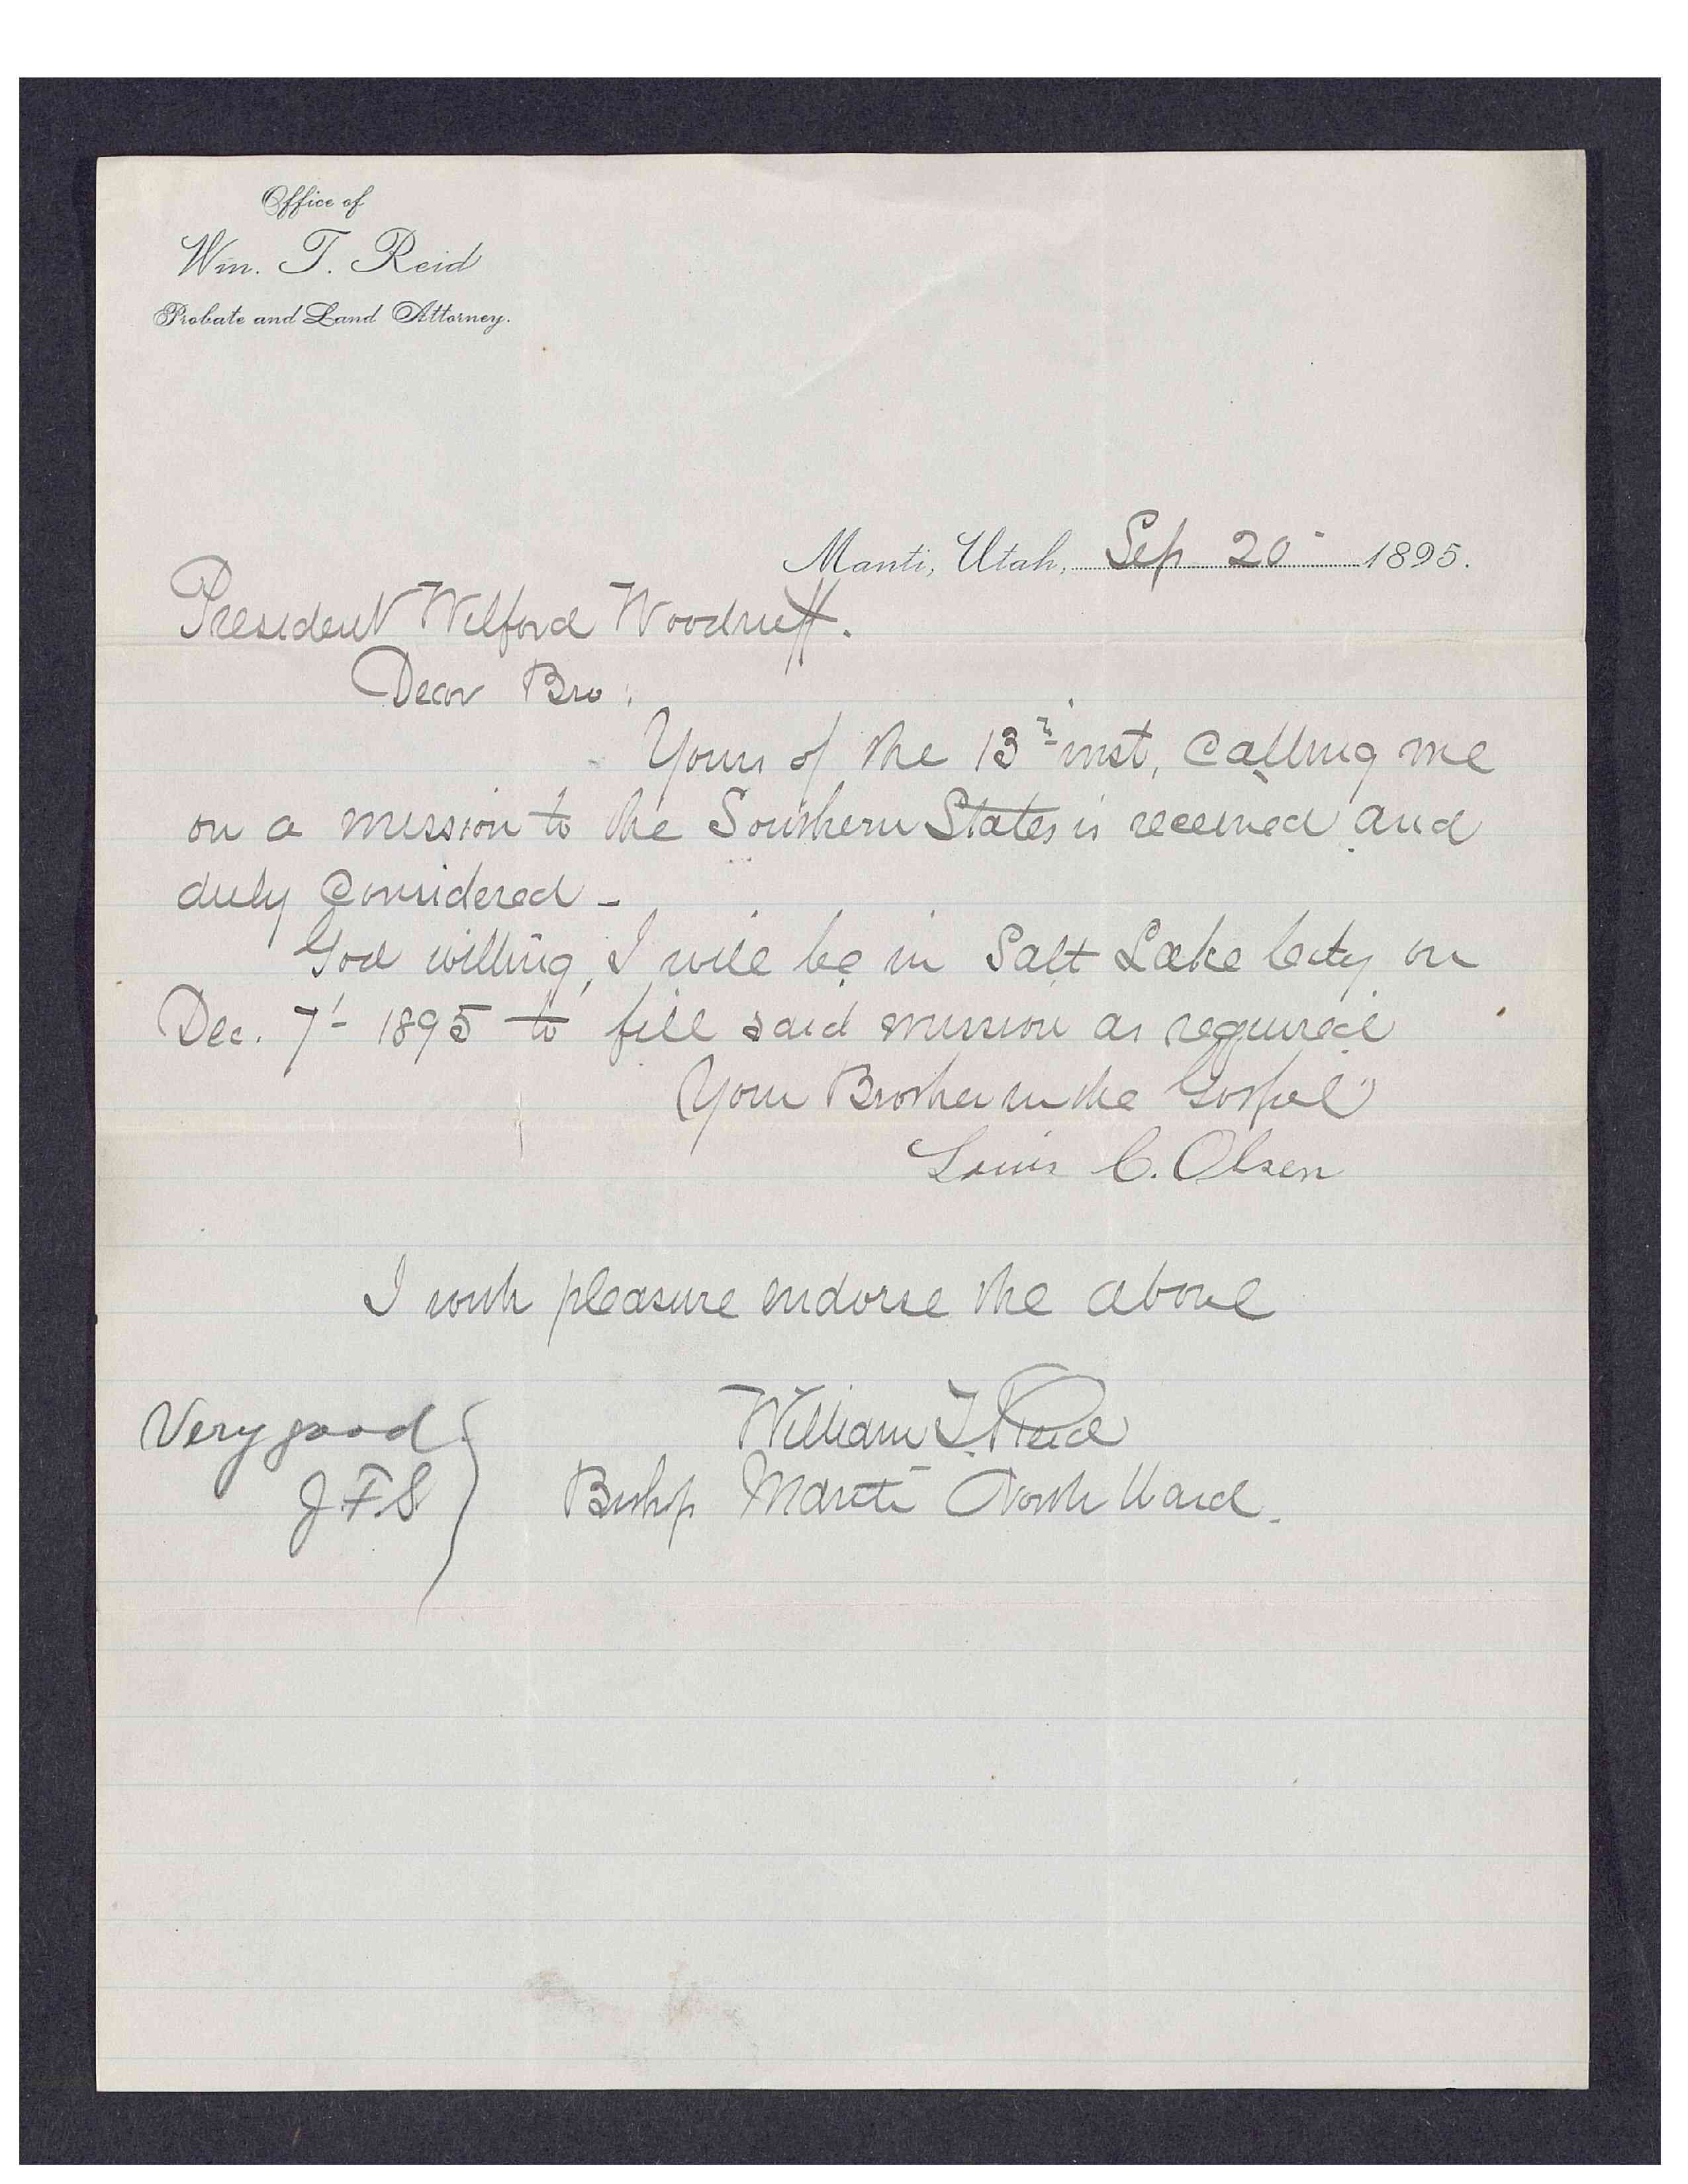 Office of
Wm. T. Reid
Probate and Land Attorney.
Manti, Utah, Sep 20 1895.
President Wilford Woodruff.
Dear Bro:
Yours of the 13th inst, calling me
on a mission to the Southern States is received and
duly considered -
God willing, I will be in Salt Lake City on
Dec. 7 - 1895 to fill said mission as required
Your Brother in the Gospel
Louis C. Olsen
I with pleasure endorse the above
William T. Reid
Bishop Manti North Ward.
Very good
J F S